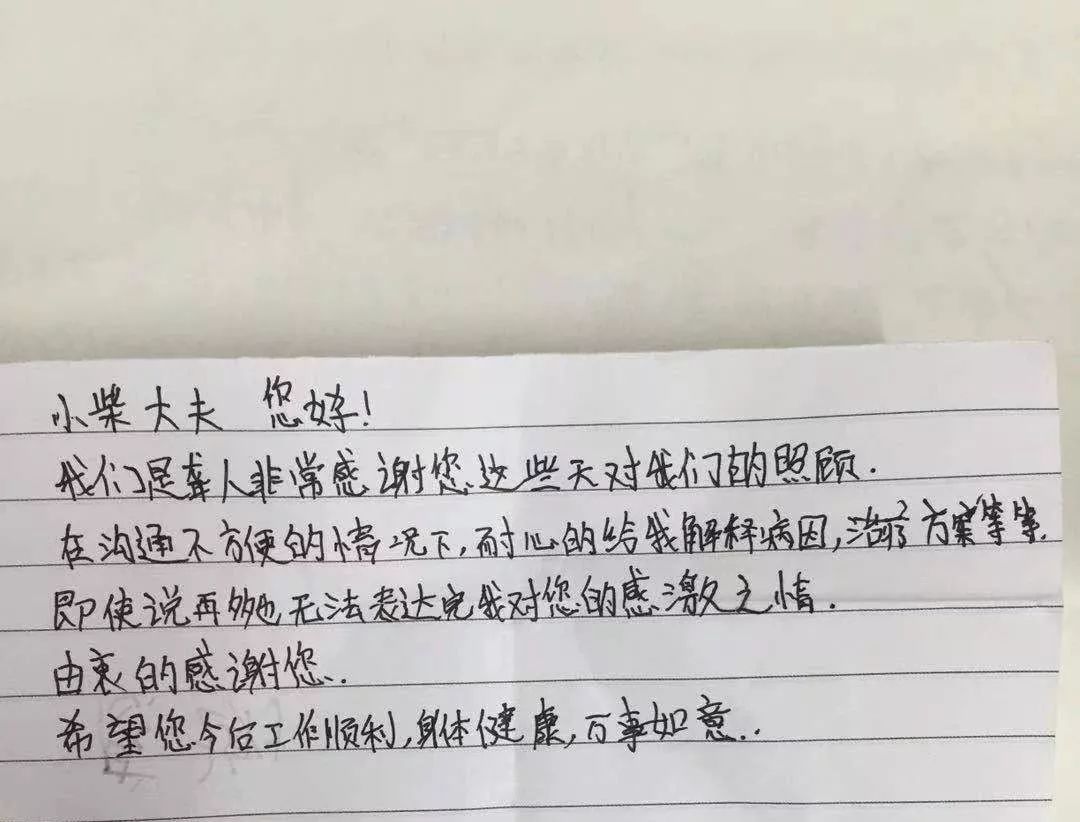 小柴大夫 您好!
我们是聋人非常感谢您这些天对我们的照顾.
在沟通不方便的情况下,耐心的给我解释病因,治疗方案等等.
即使说再多也无法表达完我对您的感激之情.
由衷的感谢您.
希望您今后工作顺利,身体健康,万事如意..